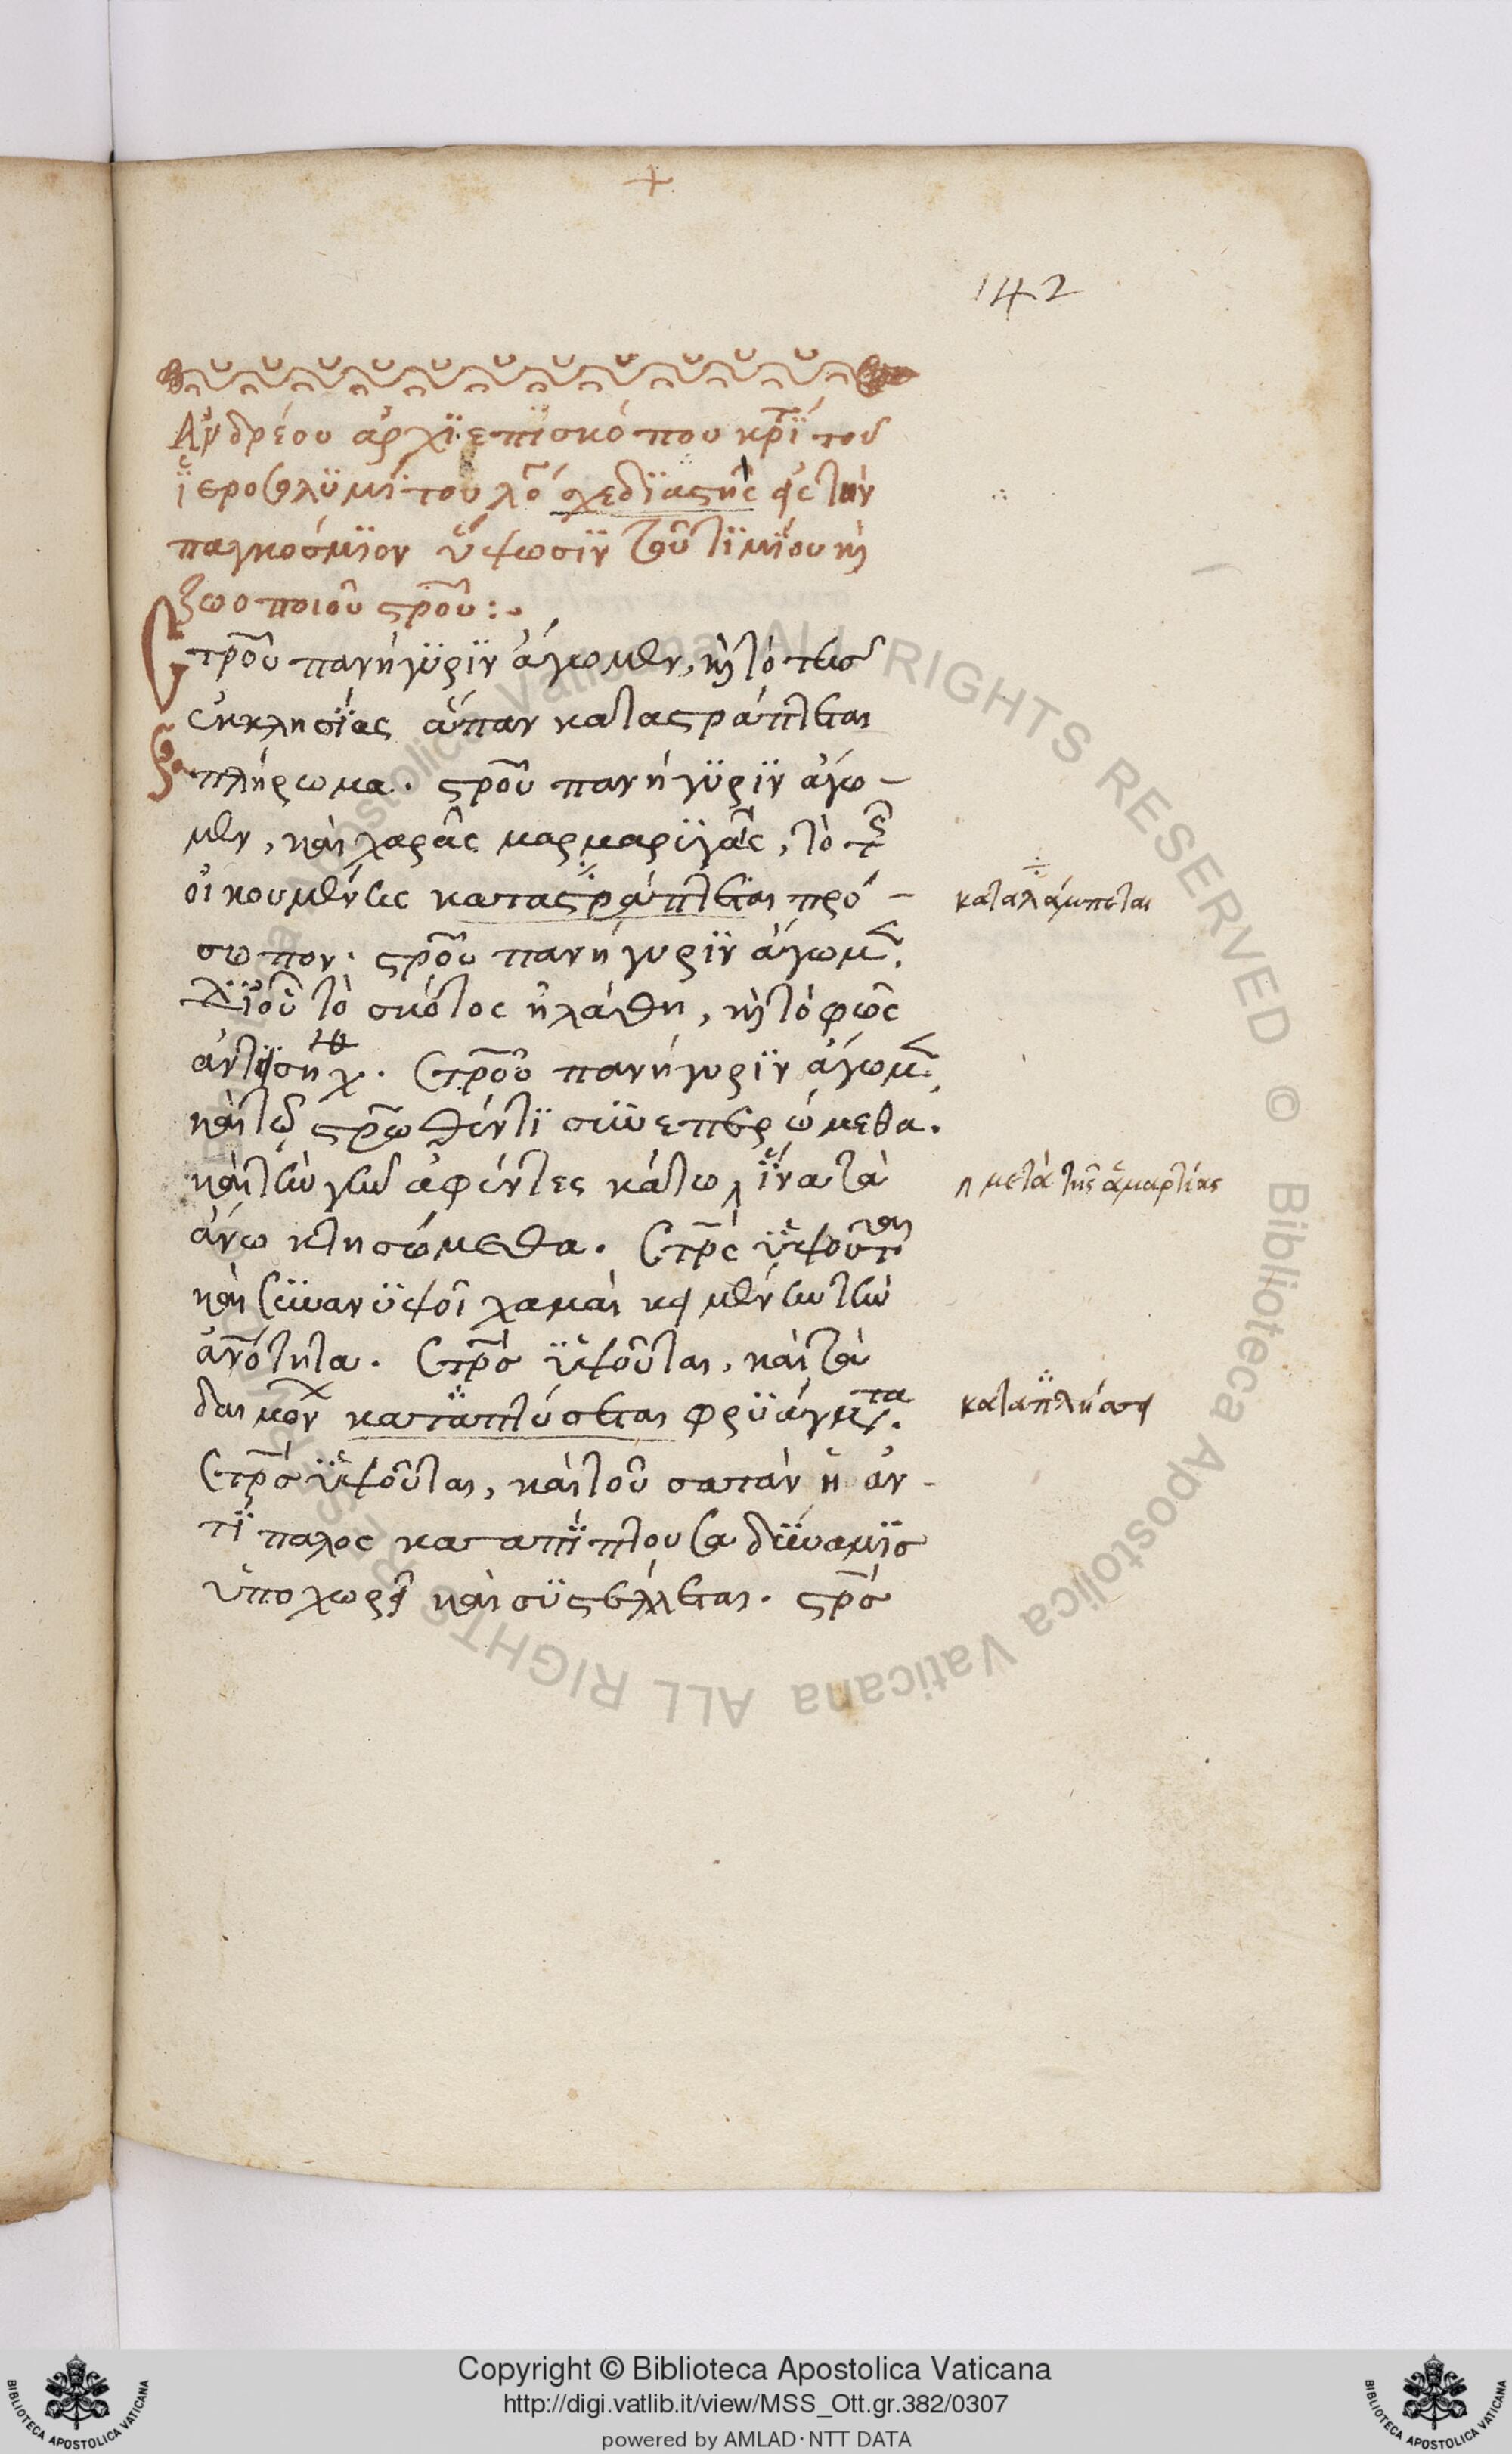 +
142
Ἀνδρέου ἀρχϊεπϊσκόπου κρῒ τοῦ
ἱεροσολϋμΐτου λό σχεδϊαςῆς εἰς τὴν
παγκοσμϊον ὕψωσϊν τοῦ τϊμΐου κὶ
ζωοποιοῦ ςροῦ :~
Στροῦ πανήγϋρϊν ἄγομεν, κὶ τὸ τῆσ
ἐκκλησΐας ἅπαν καταςράπτεται
πλήρωμα. ςροῦ πανήγϋρϊν ἄγο-
μεν, καὶ χαρᾶς μαρμαρϋγαῖς, τὸ τῆς
οἰκουμένης καταςράπτεται πρό-
σωπον. ςροῦ πανήγυρϊν ἄγωμ.
δϊ οὗ τὸ σκότος ἠλάθη, κὶ τὸ φῶς
Στροῦ πανήγυρϊν ἄγωμ.
καὶ τῷ ςρωθέντϊ συνεπερώμεθα.
καὶ τὴν γῆν ἀφέντες κάτω ἵνα τὰ
ἄνω κτησώμεθα. Στρς ὑψοῦται
καὶ συνανϋψοῖ χαμαὶ κειμένην τὴν
ἀνότητα. Στρσ ὑψοῦται, καὶ τὰ
δαιμόν καταπτύσεται φρϋάγμτα.
Στρσ ὑψοῦται, καὶ τοῦ σαταν ἡ ἀν-
τΐπαλος καταπΐπτουσα δύναμϊσ
ὑποχωρεῖ καὶ σϋςέλλεται. ςρσ
καταλάμπεται
μετὰ τῆς ἁμαρτίας
καταπλήασει
Copyright © Biblioteca Apostolica Vaticana
http://digi.vatlib.it/view/MSS_Ott.gr.382/0307
powered by AMLAD·NTT DATA
BIBLIOTECA APOSTOLICA VATICANA
BIBLIOTECA APOSTOLICA VATICANA
© Biblioteca Apostolica Vaticana ALL RIGHTS RESERVED